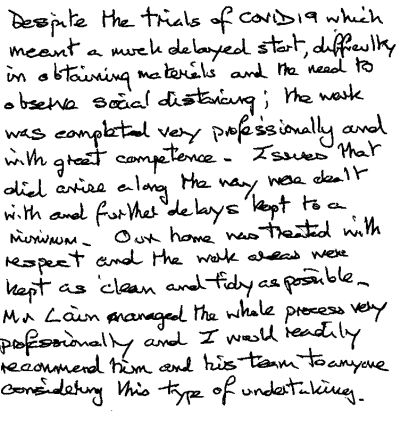 Despite the trials of COVID19 which
meant a much delayed start, difficulty
in obtaining materials and the need to
observe social distancing; the work
was completed very professionally and
with great competence. Issues that
did arise along the way were dealt
with and further delays kept to a
minimum. Our home was treated with
respect and the work areas were
kept as clean and tidy as possible.
Mr Cain managed the whole process very
professionally and I would readily
recommend him and his team to anyone
considering this type of undertaking.